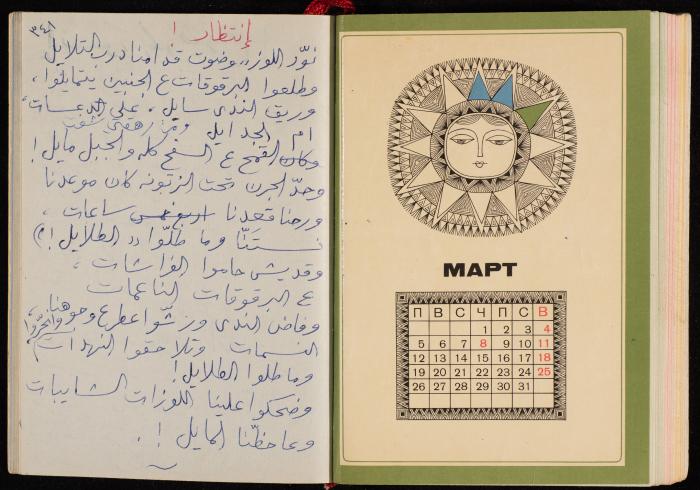 ٣٤١
إنتظار !
نوّر اللوز,, وضوت قدامنا درب التلايل
وطلعوا البرقوقات ع الجنبين يتمايلوا ،
وريق الندى سايل ، على الدعسات ،
ام الجدايل ومن زهقي شفت
وكان القمح ع السفح كله والجبل مايل !
وحدّ الجرن تحت الزتونه كان موعدنا
ورحنا قعدنا ساعات ،
نستنّا وما طلّوا ,, الطلايل !؟
وقديش حاموا الفراشات ،
ع البرقوقات الناعمات
وفاض الندى ورشّوا عطر ع وجوهنا ،
النسمات وتلاحقوا النهدات
وما طلوا الطلايل !
وضحكوا علينا اللوزات الشايبات
وعا حظّنا المايل ! .
МАРТ
П В С Ч П С В
1 2 3 4
5 6 7 8 9 10 11
12 13 14 15 16 17 18
19 20 21 22 23 24 25
26 27 28 29 30 31